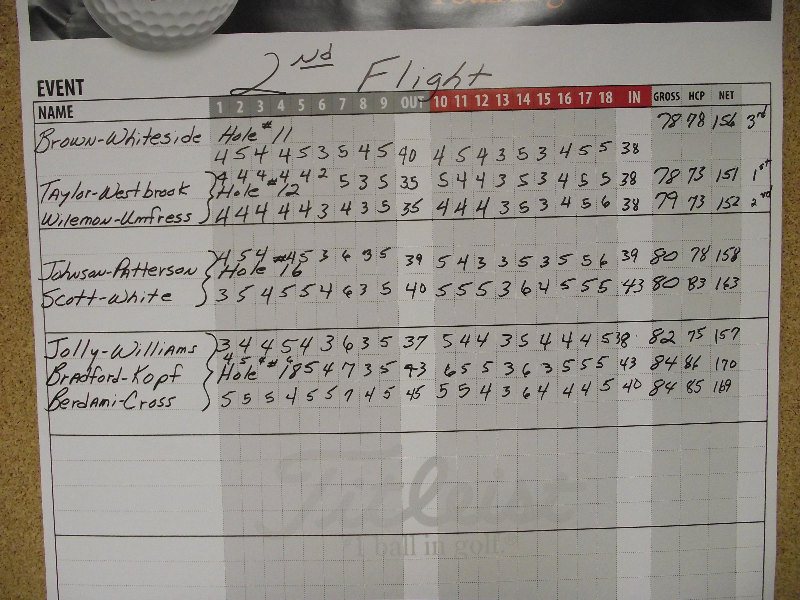 Training
2nd Flight
EVENT
NAME 1 2 3 4 5 6 7 8 9 OUT 10 11 12 13 14 15 16 17 18 IN GROSS HCP NET
Brown-Whiteside Hole #11 78 78 156 3rd
4 5 4 4 5 3 5 4 5 40 4 5 4 3 5 3 4 5 5 38
4 4 4 4 4 2 5 3 5 35 5 4 4 3 5 3 4 5 5 38 78 73 151 1st
Taylor-Westbrook Hole #12
Wilemon-Umfress 4 4 4 4 4 3 4 3 5 35 4 4 4 3 5 3 4 5 6 38 79 73 152 2nd
4 5 4 4 5 3 6 3 5 39 5 4 3 3 5 3 5 5 6 39 80 78 158
Johnson-Patterson Hole #16
Scott-White 3 5 4 5 5 4 6 3 5 40 5 5 5 3 6 4 5 5 5 43 80 83 163
Jolly-Williams 3 4 4 5 4 3 6 3 5 37 5 4 4 3 5 4 4 4 5 38 82 75 157
Bradford-Kopf Hole #18 5 4 7 3 5 43 6 5 5 3 6 3 5 5 5 43 84 86 170
Berdami-Cross 5 5 5 4 5 5 7 4 5 45 5 5 4 3 6 4 4 4 5 40 84 85 169
Titleist
#1 ball in golf.®